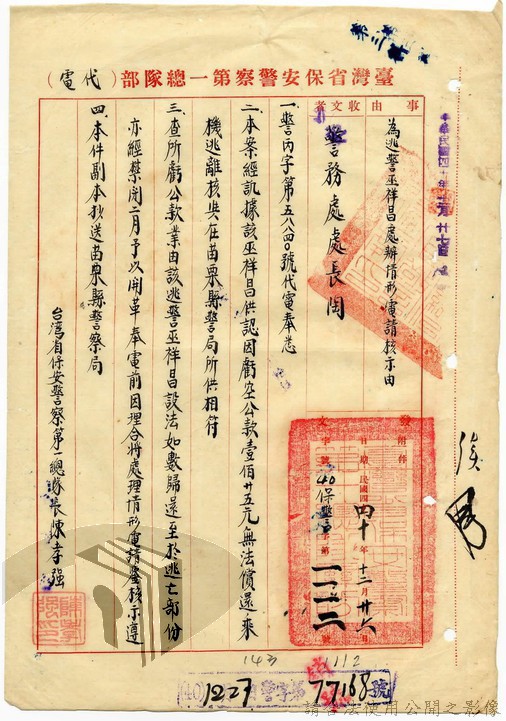 臺灣省保安警察第一總隊部（代電）
事由
為逃警巫祥昌處辦情形電請核示由
收文者
警務處處長陶
附件
發文
日期 民國四十年十二月廿六日
字號 40保警字第一一一二號
一、警丙字第五八四〇號代電奉悉
二、本案經訊據該巫祥昌供認因虧空公款壹佰廿五元無法償還乘
機逃離核與在苗栗縣警局所供相符
三、查所虧公款業由該逃警巫祥昌設法如數歸還至於逃亡部份
亦經禁閉二月予以開革奉電前因理合將處理情形電請鑒核示遵
四、本件副本抄送苗栗縣警察局
台灣省保安警察第一總隊長陳孝強
中華民國四十年十二月廿七日
143
1112
(40) 1227 警字第 77168 號
請合法使用公開之影像